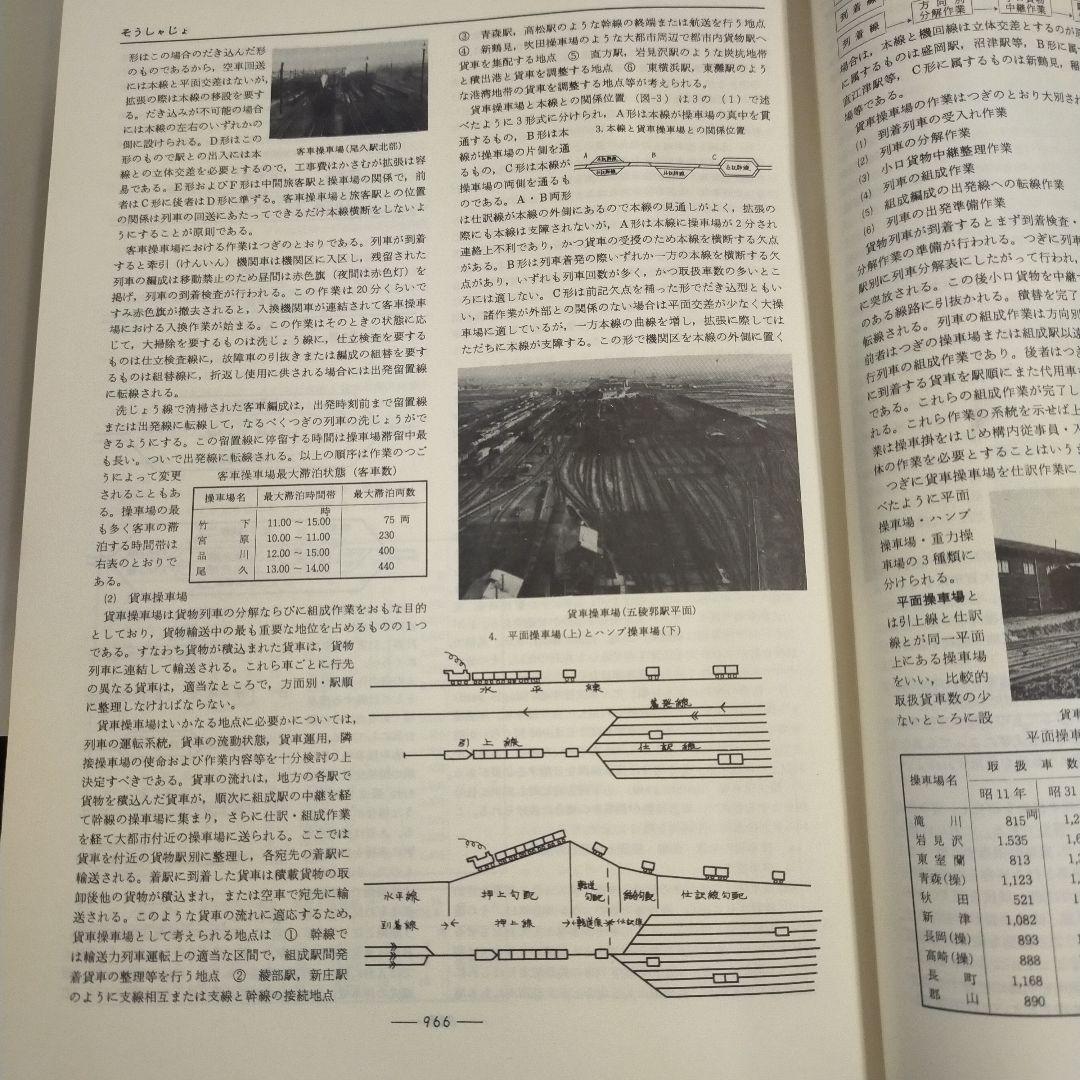 そうしゃじょ
形はこの場合のだき込んだ形
のものであるから，空車回送
には本線と平面交差はないが，
拡張の際は本線の移設を要す
る。だき込みが不可能の場合
には本線の左右のいずれかの
側に設けられる。D形はこの
形のもので駅との出入には本
客車操車場(尾久駅北部)
線との立体交差を必要とするので，工事費はかさむが拡張は容
易である。E形およびF形は中間旅客駅と操車場の関係で，前
者はC形に後者はD形に準ずる。客車操車場と旅客駅との位置
の関係は列車の回送にあたってできるだけ本線横断をしないよ
うにすることが原則である。
客車操車場における作業はつぎのとおりである。列車が到着
すると牽引（けんいん）機関車は機関区に入区し，残留された
列車の編成は移動禁止のため昼間は赤色旗（夜間は赤色灯）を
掲げ，列車の到着検査が行われる。この作業は20分くらいで
すみ赤色旗が撤去されると，入換機関車が連結されて客車操車
場における入換作業が始まる。この作業はそのときの状態に応
じて，大掃除を要するものは洗じょう線に，仕立検査を要する
ものは仕立検査線に，故障車の引抜きまたは編成の組替を要す
るものは組替線に，折返し使用に供される場合には出発留置線
に転線される。
洗じょう線で清掃された客車編成は，出発時刻前まで留置線
または出発線に転線して，なるべくつぎの列車の洗じょうがで
きるようにする。この留置線に停留する時間は操車場滞留中最
も長い。ついで出発線に転線される。以上の順序は作業のつご
うによって変更
されることもあ
る。操車場の最
も多く客車の滞
泊する時間帯は
右表のとおりで
ある。
客車操車場最大滞泊状態（客車数）
操車場名 最大滞泊時間帯 最大滞泊両数
竹下 11.00～15.00時 75両
宮原 10.00～11.00 230
品川 12.00～15.00 400
尾久 13.00～14.00 440
(2) 貨車操車場
貨車操車場は貨物列車の分解ならびに組成作業をおもな目的
としており，貨物輸送中の最も重要な地位を占めるものの1つ
である。すなわち貨物が積込まれた貨車は，貨物
列車に連結して輸送される。これら車ごとに行先
の異なる貨車は，適当なところで，方面別・駅順
に整理しなければならない。
貨車操車場はいかなる地点に必要かについては，
列車の運転系統，貨車の流動状態，貨車運用，隣
接操車場の使命および作業内容等を十分検討の上
決定すべきである。貨車の流れは，地方の各駅で
貨物を積込んだ貨車が，順次に組成駅の中継を経
て幹線の操車場に集まり，さらに仕訳・組成作業
を経て大都市付近の操車場に送られる。ここでは
貨車を付近の貨物駅別に整理し，各宛先の着駅に
輸送される。着駅に到着した貨車は積載貨物の取
卸後他の貨物が積込まれ，または空車で宛先に輸
送される。このような貨車の流れに適応するため，
貨車操車場として考えられる地点は ① 幹線で
は輸送力列車運転上の適当な区間で，組成駅間発
着貨車の整理等を行う地点 ② 綾部駅，新庄駅
のように支線相互または支線と幹線の接続地点
③ 青森駅，高松駅のような幹線の終端または航送を行う地点
④ 新鶴見，吹田操車場のような大都市周辺で都市内貨物駅へ
貨車を集配する地点 ⑤ 直方駅，岩見沢駅のような炭坑地帯
と積出港と貨車を調整する地点 ⑥ 東横浜駅，東灘駅のよう
な港湾地帯の貨車を調整する地点等が考えられる。
貨車操車場と本線との関係位置（図-3）は3の（1）で述
べたように3形式に分けられ，A形は本線が操車場の真中を貫
通するもの，B形は本
線が操車場の片側を通
るもの，C形は本線が
操車場の両側を通るも
のである。A・B両形
3. 本線と貨車操車場との関係位置
A B C
は仕訳線が本線の外側にあるので本線の見通しがよく，拡張の
際にも本線は支障されないが，A形は本線に操車場が2分され
連絡上不利であり，かつ貨車の受授のため本線を横断する欠点
がある。B形は列車着発の際いずれか一方の本線を横断する欠
点があり，いずれも列車回数が多く，かつ取扱車数の多いとこ
ろには適しない。C形は前記欠点を補った形でだき込型ともい
い，諸作業が外部との関係のない場合は平面交差が少なく大操
車場に適しているが，一方本線の曲線を増し，拡張に際しては
ただちに本線が支障する。この形で機関区を本線の外側に置く
貨車操車場(五稜郭駅平面)
4. 平面操車場(上)とハンプ操車場(下)
水平線
着発線
引上線
仕訳線
水平線 押上勾配 転送勾配 仕訳線勾配
到着線 押上線 転送線 仕訳線
― 966 ―
到着線 方向別分解作業 中継作業
到着線
場合は，本線と機回線は立体交差とするのが
に属するものは盛岡駅，沼津駅等，B形に属
直江津駅等，C形に属するものは新鶴見，稲
場等である。
貨車操車場の作業はつぎのとおり大別され
(1) 到着列車の受入れ作業
(2) 列車の分解作業
(3) 小口貨物中継整理作業
(4) 列車の組成作業
(5) 組成編成の出発線への転線作業
(6) 列車の出発準備作業
貨物列車が到着するとまず到着検査・
分解作業の準備が行われる。つぎに列車
駅別に列車分解表にしたがって行われ，
に突放される。この後小口貨物を中継
のある線路に引抜かれる。積替を完了
転線される。列車の組成作業は方向別
前者はつぎの操車場または組成駅以遠
行列車の組成作業であり。後者はつぎ
に到着する貨車を駅順にまた代用車
である。これらの組成作業が完了し
れる。これら作業の系統を示せば上
業は操車掛をはじめ構内従事員・入
体の作業を必要とすることはいうま
つぎに貨車操車場を仕訳作業に
べたように平面
操車場・ハンプ
操車場・重力操
車場の3種類に
分けられる。
平面操車場と
は引上線と仕訳
線とが同一平面
上にある操車場
をいい，比較的
取扱貨車数の少
ないところに設
貨車
平面操車
操車場名 取扱車数
昭11年 昭31
滝川 815両 1,2
岩見沢 1.535
東室蘭 813
青森(操) 1,123
秋田 521
新津 1,082
長岡(操) 893
高崎(操) 888
長町 1,168
郡山 890